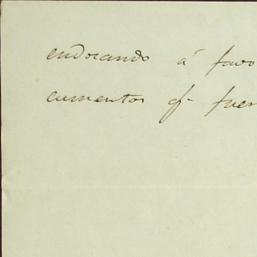 endosando á favo
cumentos q.e fuer